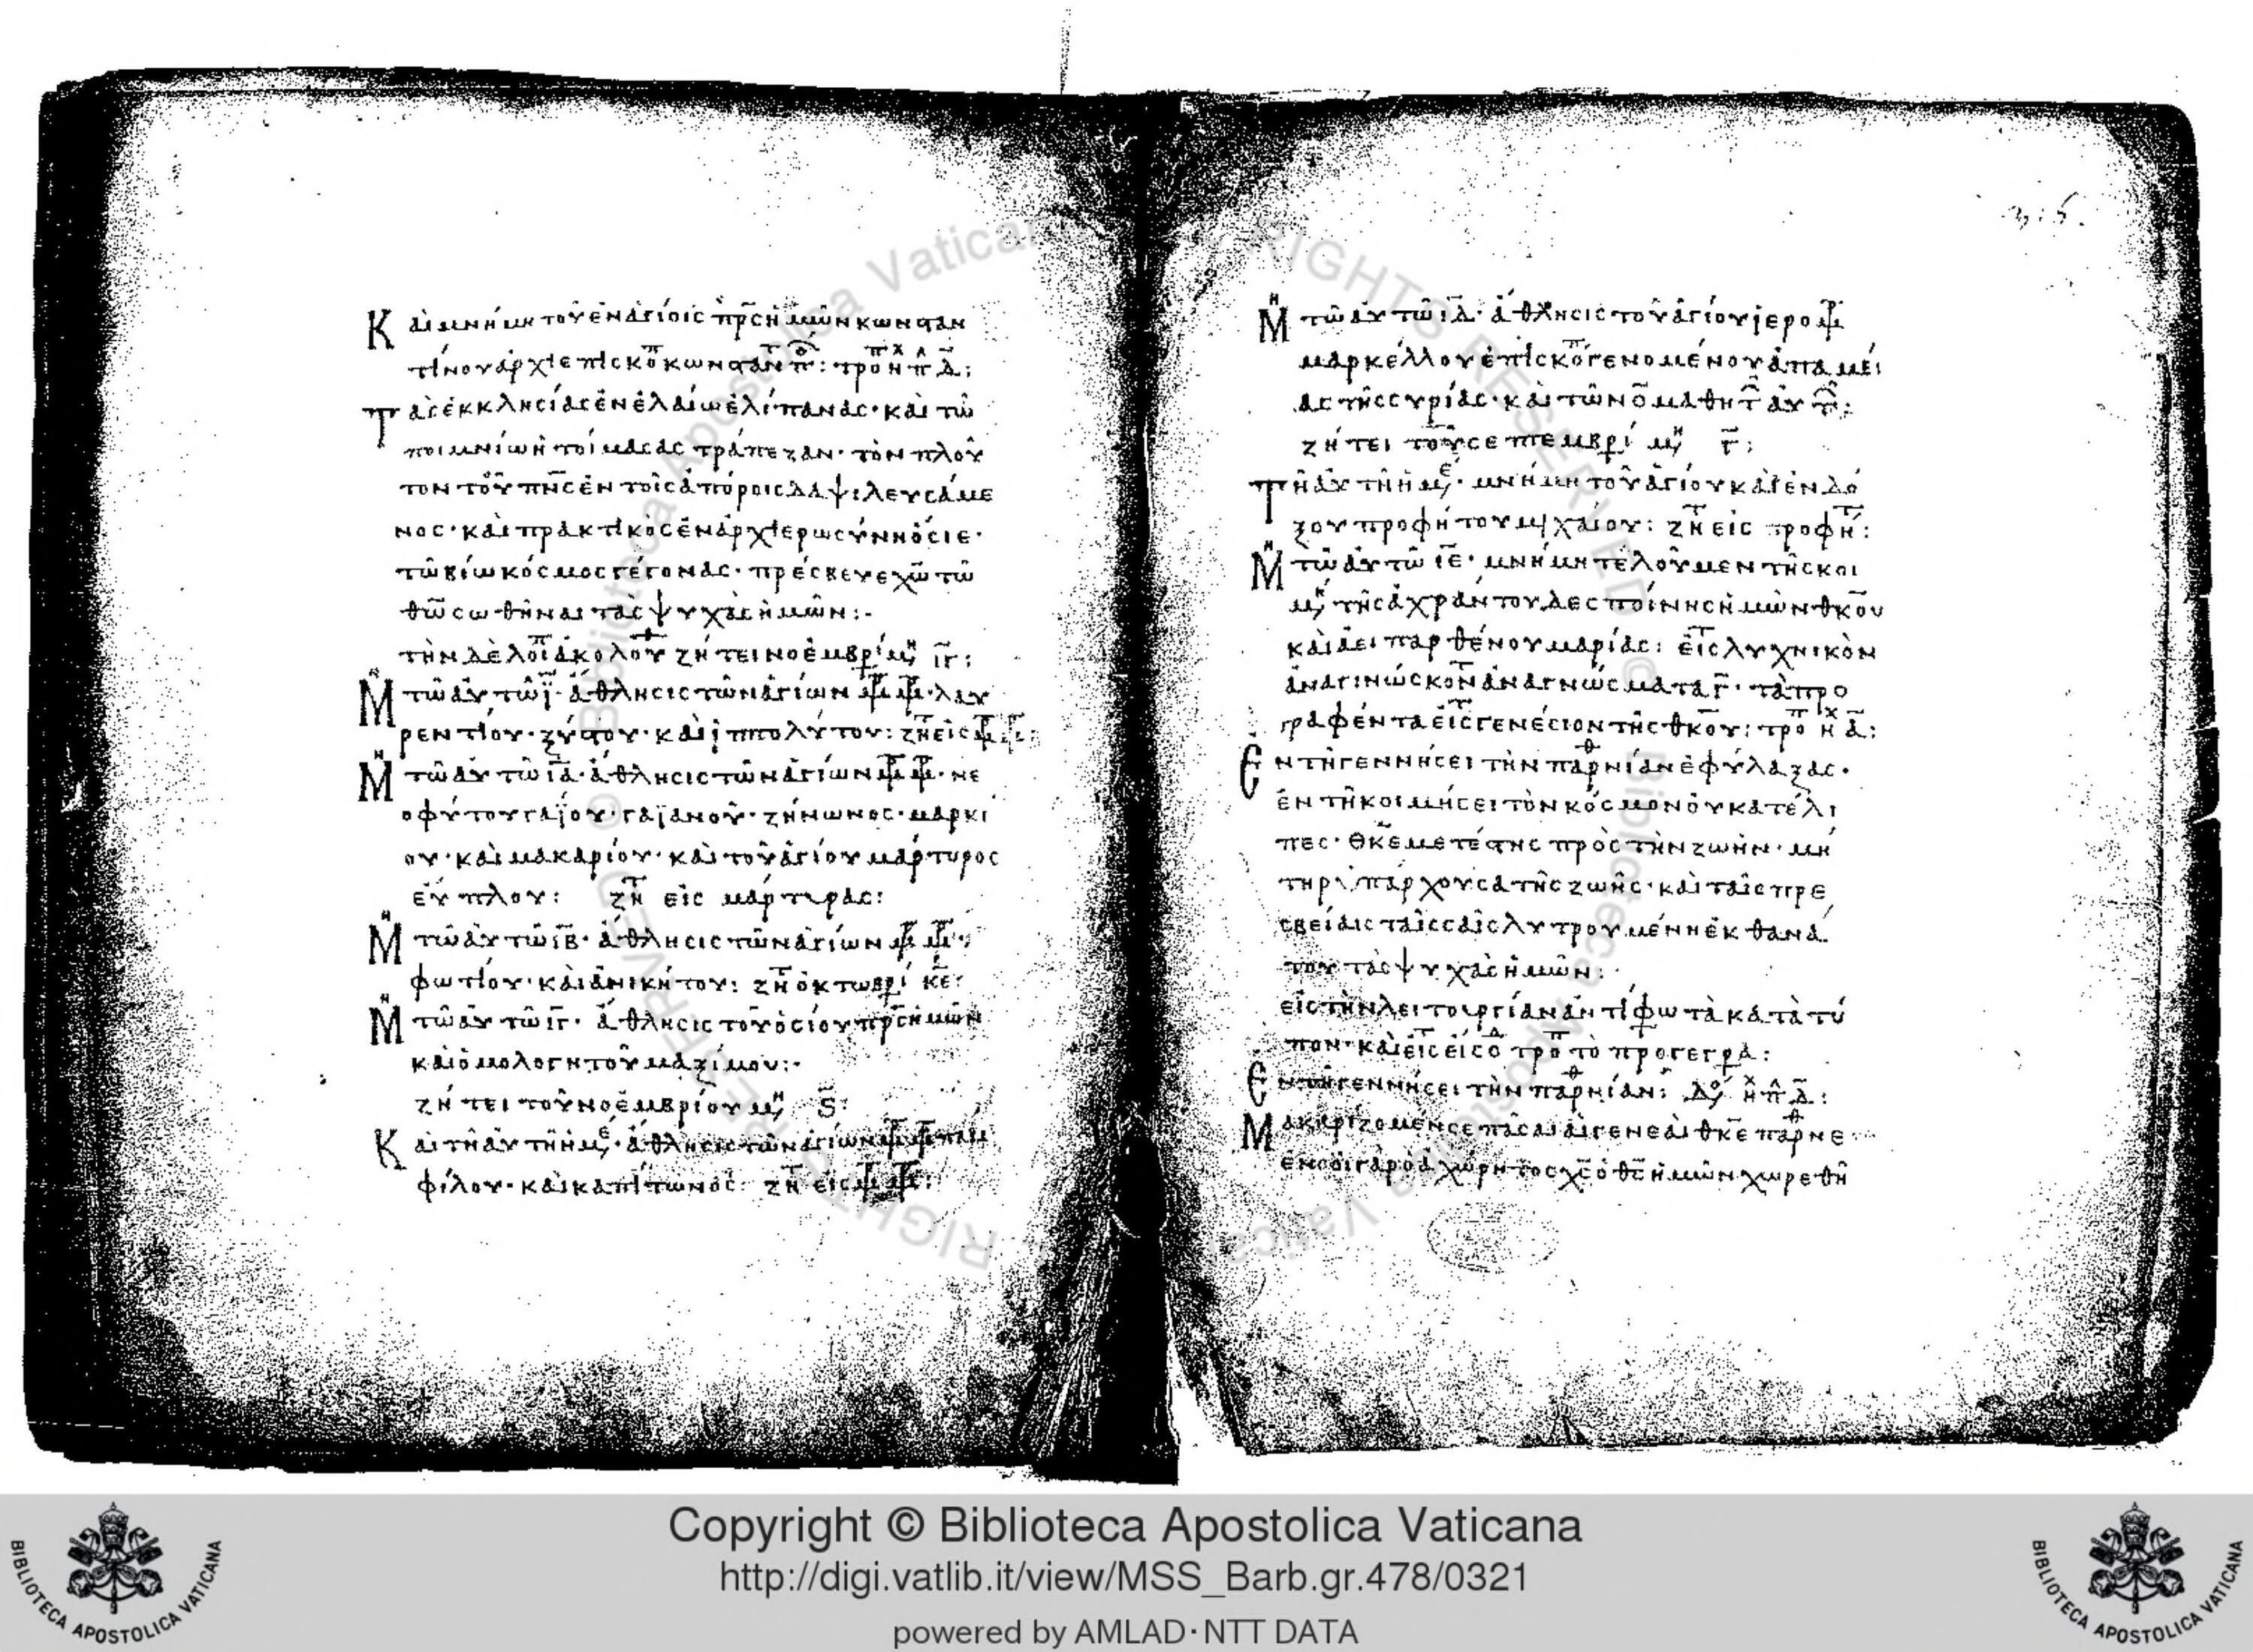 Καὶ μνήμη τοῦ ἐν ἁγίοις π̅ρ̅ς ἡμῶν κωνσταν
τίνου ἀρχιεπισκοπ κωνσταν π: τρο π ηχ πλ α̅:
Τὰς ἐκκλησίας ἐν ἐλαίω ἐλίπανας· καὶ τῶ
ποιμνίω ἡτοίμασας τράπεζαν· τὸν πλοῦ
τον τοῦ π̅ν̅ς ἐν τοῖς ἀπόροις δαψιλευσάμε
νος· καὶ πρακτικὸς ἐν ἀρχιερωσύνη ὅσιε·
τῶ βίω κόσμος γέγονας· πρέσβευε χ̅ω̅ τῶ
θ̅ω̅ σωθῆναι τὰς ψυχὰς ἡμῶν:-
τὴν δὲ λοιπ ἀκολου ζήτει νοεμβρί μη ι̅γ̅:
Μη τῶ αὐτῶ ι̅ ἄθλησις τῶν ἁγίων μμ· λαυ
ρεντίου· ξύστου· καὶ ἱππολύτου: ζητ εἰς μμ:
Μη τῶ αὐτῶ ι̅α̅· ἄθλησις τῶν ἁγίων μμ· νε
οφύτου γαΐου· γαϊανοῦ· ζήνωνος· μάρκι
ου· καὶ μακαρίου· καὶ τοῦ ἁγίου μάρτυρος
εὔπλου: ζητ εἰς μάρτυρας:
Μη τῶ αὐτῶ ι̅β̅· ἄθλησις τῶν ἁγίων μμ·
φωτίου· καὶ ἀνικήτου: ζητ ὀκτωβρί κ̅ε̅:
Μη τῶ αὐτῶ ι̅γ̅· ἄθλησις τοῦ ὁσίου π̅ρ̅ς ἡμῶν
καὶ ὁμολογητοῦ μαξίμου:-
ζήτει τοῦ νοεμβρίου μη ς̅:
Καὶ τῆ αὐτῆ ἡμε· ἄθλησις τῶν ἁγίων μμ παμ
φίλου· καὶ καπίτωνος: ζητ εἰς μμ:
Μη τῶ αὐτῶ ι̅δ̅· ἄθλησις τοῦ ἁγίου ἱερομ
μαρκέλλου ἐπισκοπ γενομένου ἀπαμεί
ας τῆς συρίας· καὶ τῶν ὁ μαθητ αὐτ:
ζήτει τοῦ σεπτεμβρί μη γ̅:
Τῆ αὐτῆ ἡμε· μνήμη τοῦ ἁγίου καὶ ἐνδό
ξου προφήτου μιχαίου: ζητ εἰς προφητ:
Μη τῶ αὐτῶ ι̅ε̅· μνήμη τελοῦμεν τῆς κοι
μη τῆς ἀχράντου δεσποίνης ἡμῶν θ̅κ̅ου
καὶ ἀειπαρθένου μαρίας: εἰς τ λυχνικὸν
ἀναγινώσκοντ ἀναγνώσματα γ̅· τὰ προ
γραφέντα εἰς τ γενέσιον τῆς θ̅κ̅ου: τρο π ηχ α̅:
Ἐν τῆ γεννήσει τὴν παρθνίαν ἐφύλαξας·
ἐν τῆ κοιμήσει τὸν κόσμον οὐ κατέλι
πες· θ̅κ̅ε μετέστης πρὸς τὴν ζωὴν· μή
τηρ ὑπάρχουσα τῆς ζωῆς· καὶ ταῖς πρε
σβείαις ταῖς σαῖς λυτρουμένη ἐκ θανά
του τὰς ψυχὰς ἡμῶν:·
εἰς τὴν λειτουργίαν ἀντίφω τὰ κατὰ τύ
πον· καὶ εἰς τ εἴσοδ τροπ τὸ προγεγρα:
Ἐν τῆ γεννήσει τὴν παρθνίαν: ηχ πλ α̅:
Μακαρίζομέν σε πᾶσαι αἱ γενεαὶ θ̅κ̅ε παρθνε
ἐν σοὶ γὰρ ὁ ἀχώρητος χ̅ς̅ ὁ θ̅ς̅ ἡμῶν χωρεθῆ
Copyright © Biblioteca Apostolica Vaticana
http://digi.vatlib.it/view/MSS_Barb.gr.478/0321
powered by AMLAD·NTT DATA
BIBLIOTECA APOSTOLICA VATICANA
BIBLIOTECA APOSTOLICA VATICANA